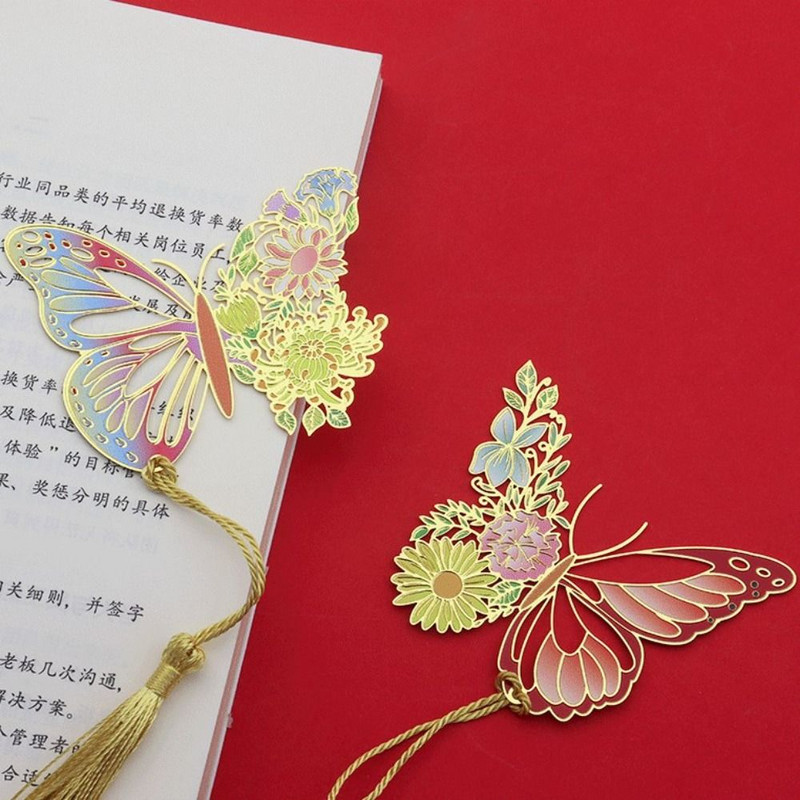 行业同品类的平均退换货率数
数据告知每个相关岗位员工，
给企业及
发展及
换货率
及降低退
体验”的目标
果、奖惩分明的具体
相关细则，并签字
老板几次沟通，
解决方案。
个管理者的
合适